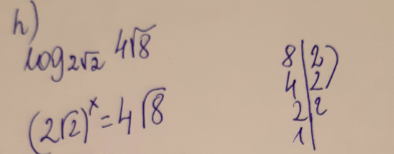 h)
log 2√2 4√8
(2√2)^x = 4√8
8|2
4|2
2|2
1|